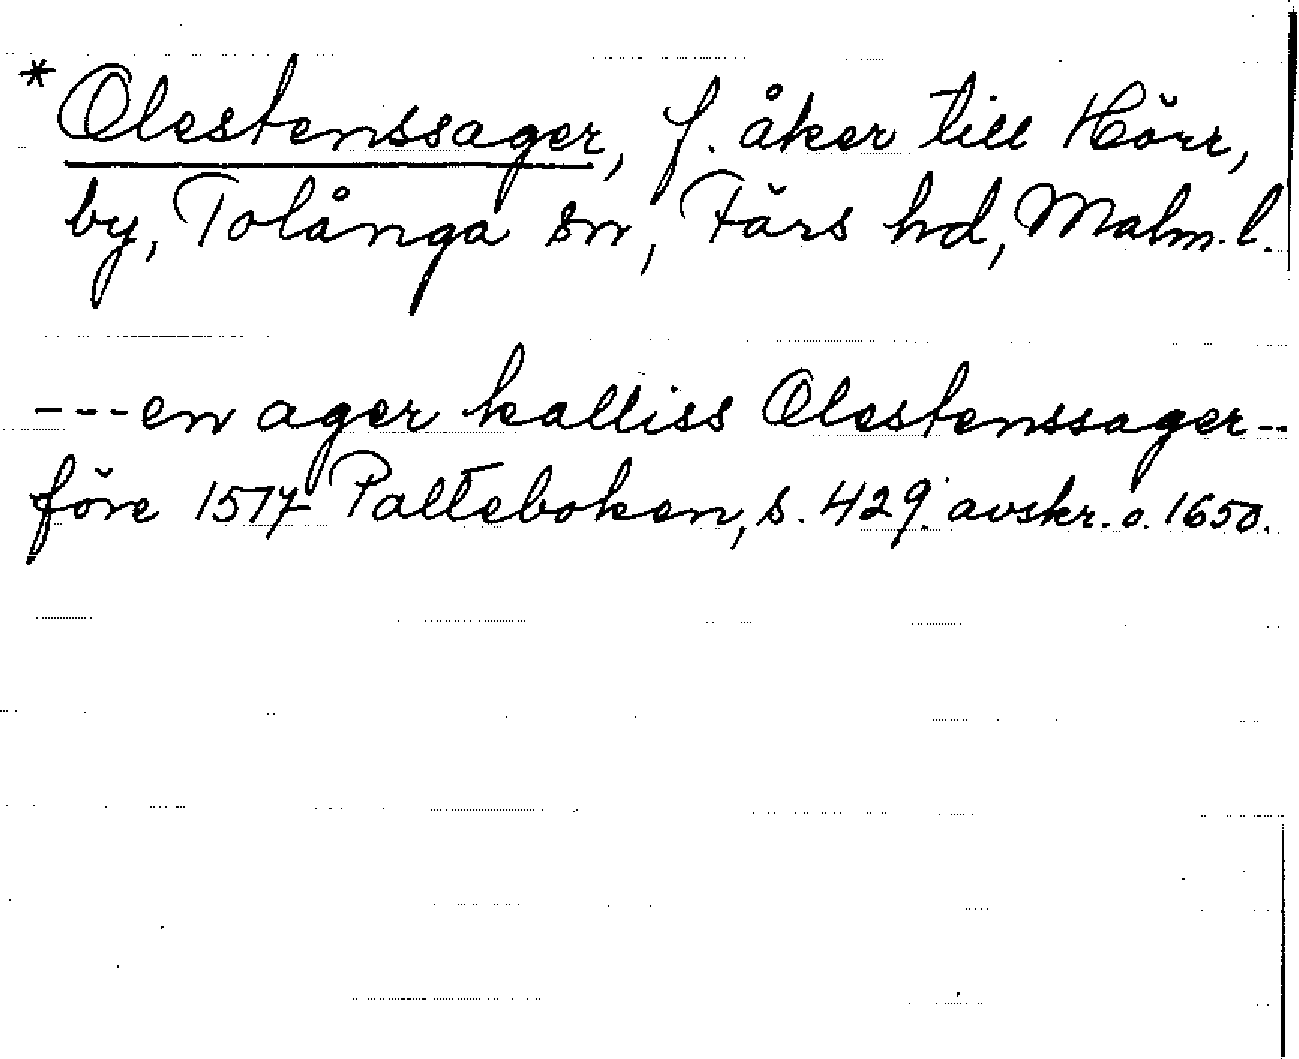 *Olestenssager, f. åker till Hörr,
by, Tolånga sn, Färs hd, Malm. l.
---en ager kalliss Olestenssager--
före 1517 Palteboken, s. 429. avskr. o. 1650.